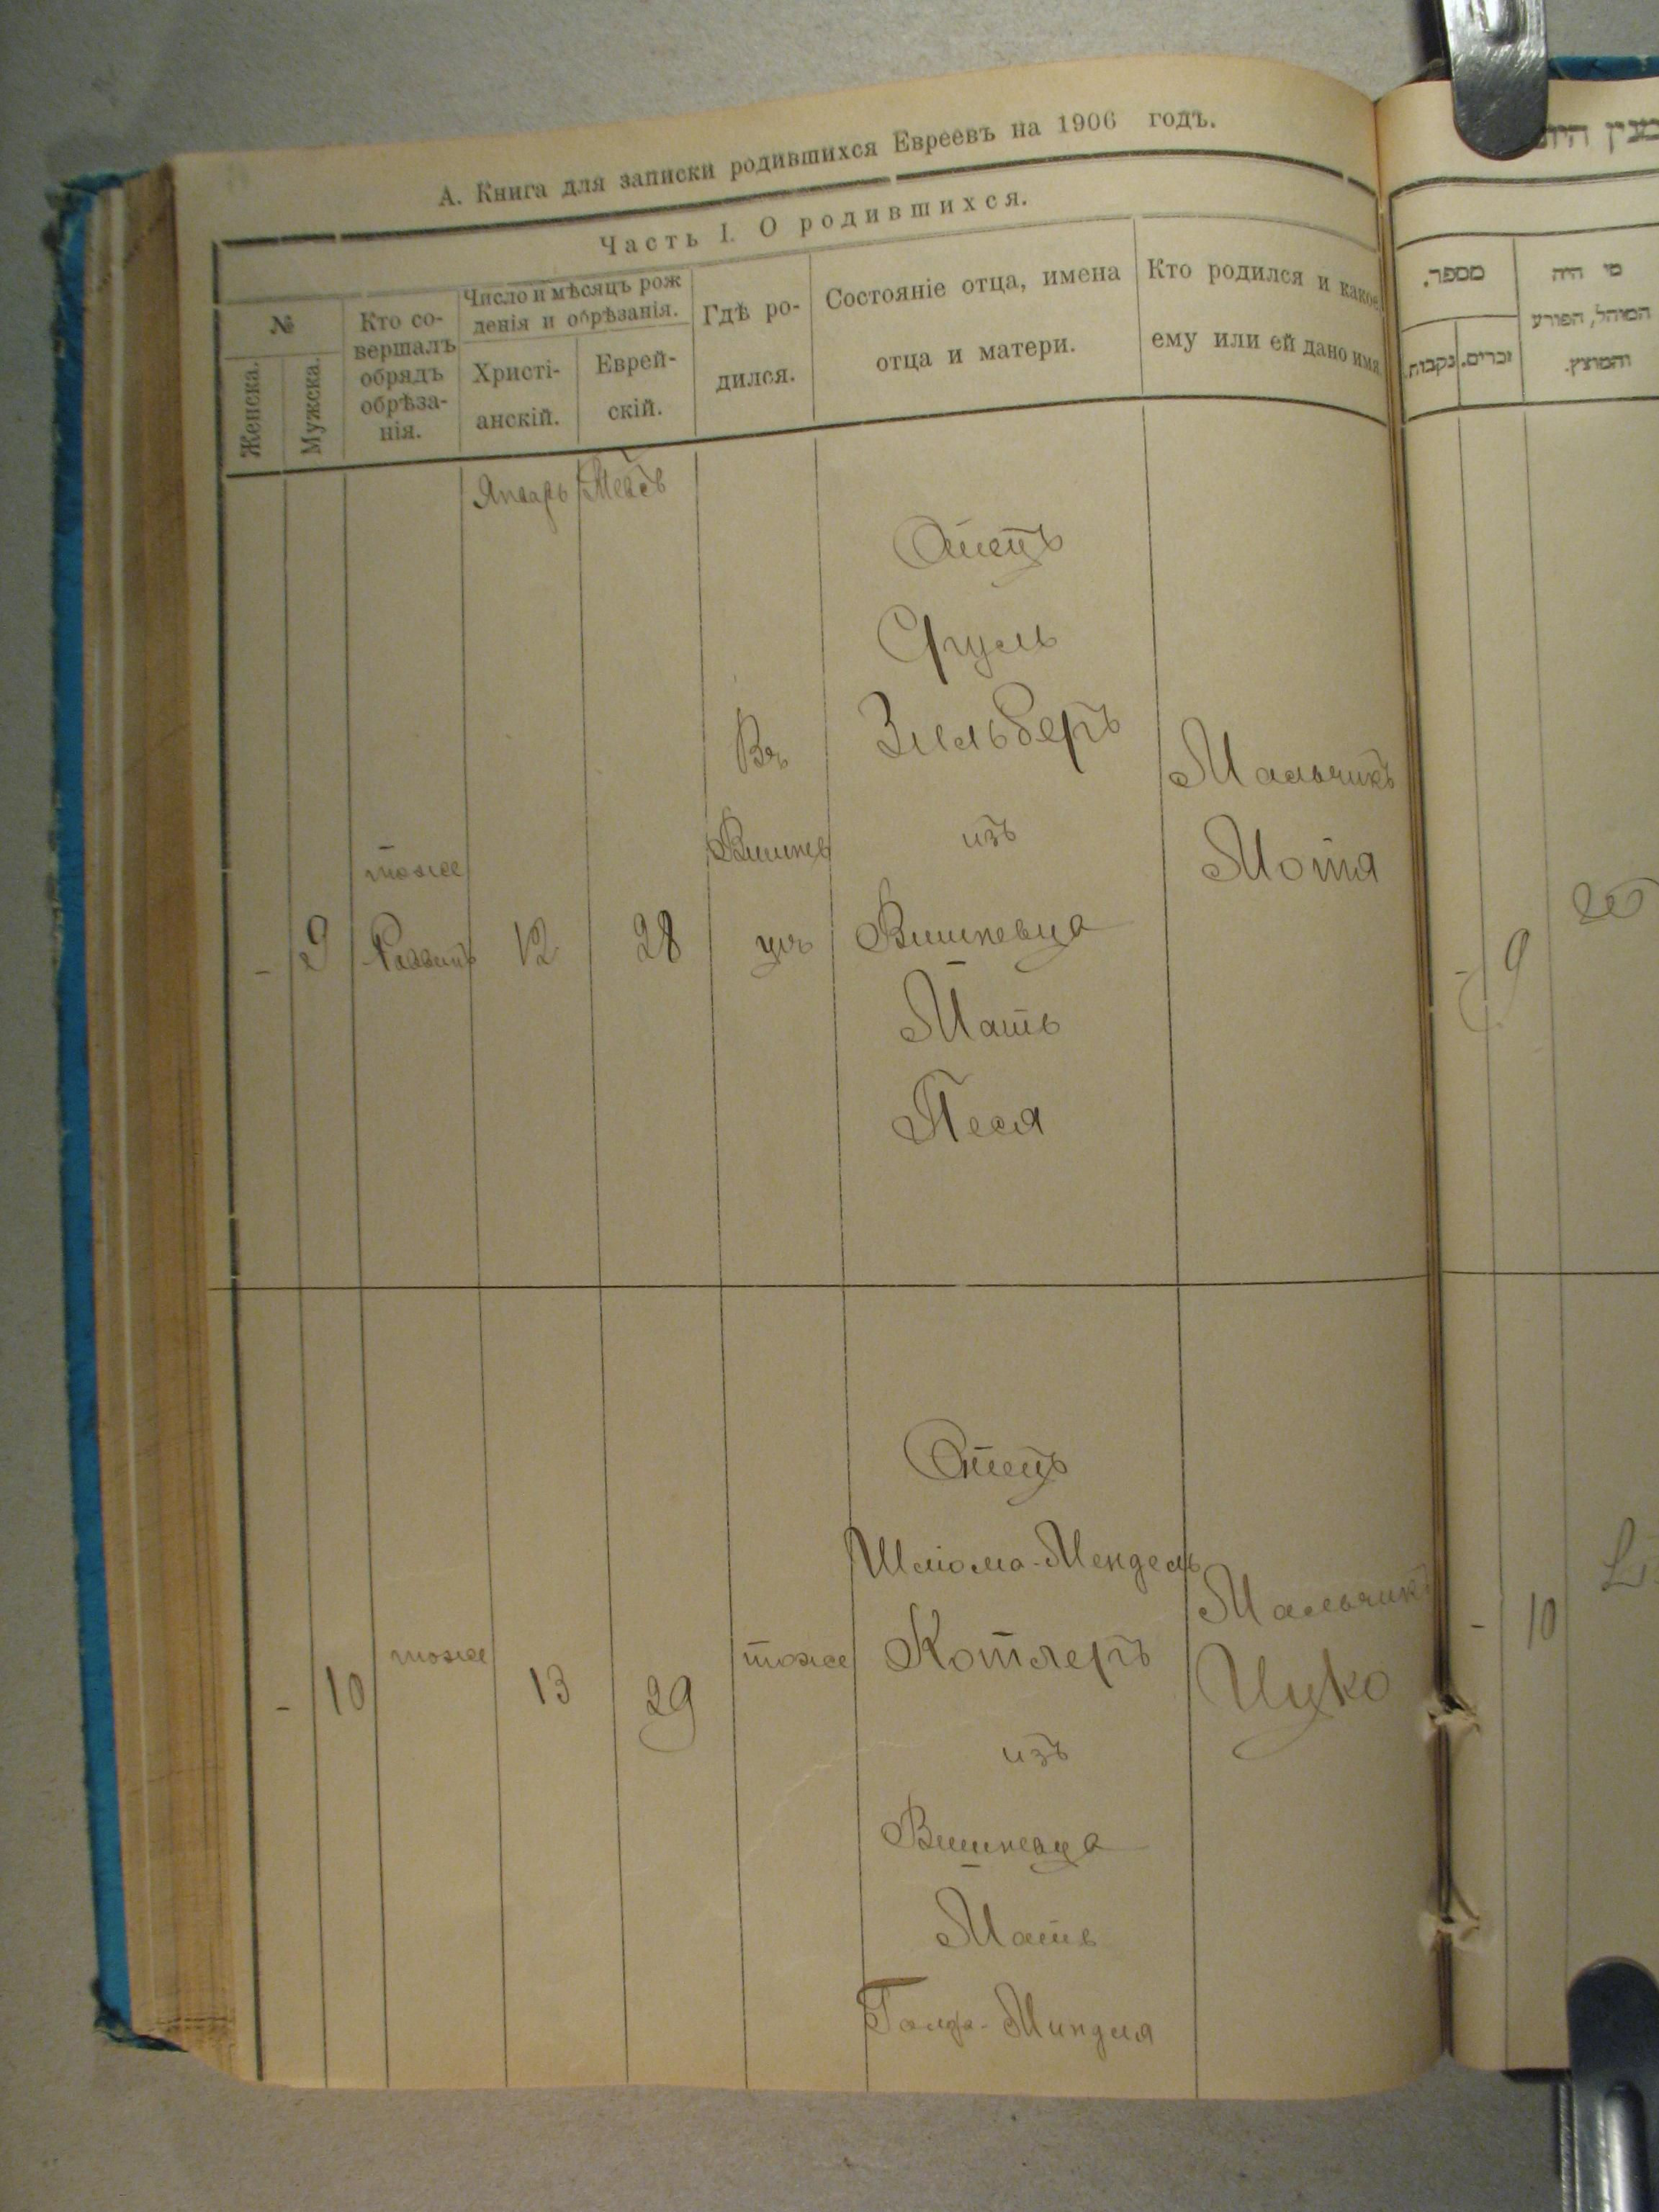 А. Книга для записки родившихся Евреевъ на 1906 годъ.
Часть I. О родившихся.
№
Женска.
Мужска.
Кто со-
вершалъ
обрядъ
обрѣза-
нія.
Число и мѣсяцъ рож
денія и обрѣзанія.
Христі-
анскій.
Еврей-
скій.
Гдѣ ро-
дился.
Состояніе отца, имена
отца и матери.
Кто родился и какое
ему или ей дано имя
Январь
-
9
тоже
12
28
Въ
Вишнев
цѣ
Отецъ
Сруль
Зильберъ
изъ
Вишневца
Мать
Песя
Мальчикъ
Мотя
-
10
тоже
13
29
тоже
Отецъ
Шліома-Мендель
Котлеръ
изъ
Вишневца
Мать
Миндля
Мальчикъ
Ицко
מספר.
נקבות.
זכרים.
מי היה
המוהל, הפורע
והמוצץ.
-
9
-
10